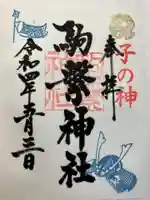 奉拝
子の神
駒繋神社
令和四年五月三日